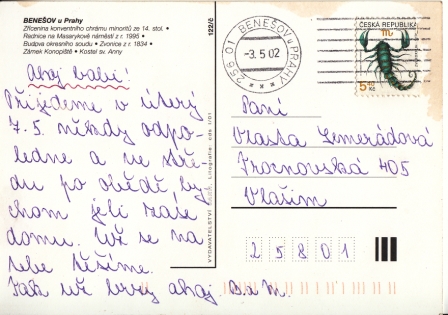 BENEŠOV u Prahy
Zřícenina konventního chrámu minoritů ze 14. stol. •
Radnice na Masarykově náměstí z r. 1995 •
Budova okresního soudu • Zvonice z r. 1834 •
Zámek Konopiště • Kostel sv. Anny
122/č
Ahoj babi!
Přijedeme v úterý
7. 5. někdy odpo-
ledne a ve stře-
du po obědě by-
chom jeli zase
domu. Už se na
tebe těšíme.
Tak už brzy ahoj. B. a M.
VYDAVATELSTVÍ
256 01 BENEŠOV u PRAHY
-3.5.02
ČESKÁ REPUBLIKA
5,40
Kč
Paní
Vlasta Zemerádová
Trocnovská 405
Vlašim
25801